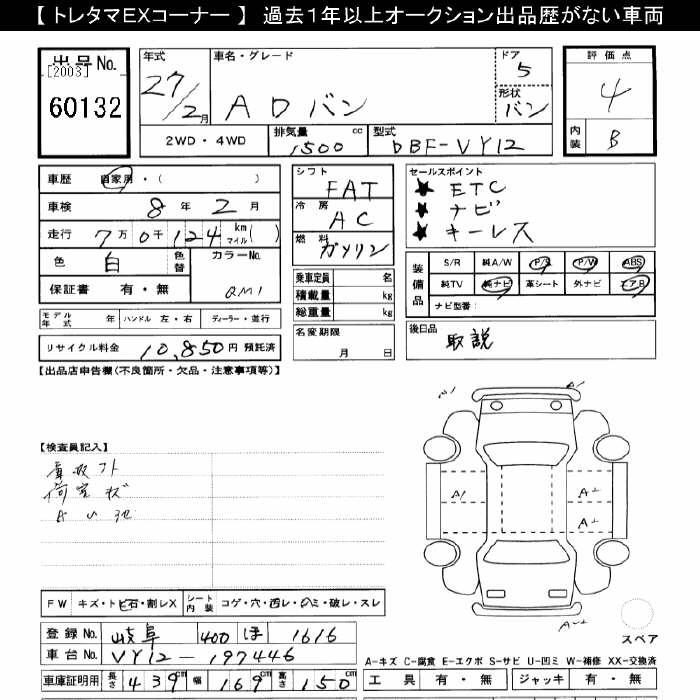 【 トレタマEXコーナー 】 過去1年以上オークション出品歴がない車両
出品No. [2003] 60132
年式 27/2月
車名・グレード ADバン
ドア 5
形状 バン
評価点 4
内装 B
2WD・4WD 排気量 1500 cc 型式 DBF-VY12
車歴 自家用・( )
車検 8年 2月
走行 7万0千124 km マイル( )
色 白 色替 カラーNo. QM1
保証書 有・無
モデル年式 年 ハンドル 左・右 ディーラー・並行
リサイクル料金 10,850円 預託済
シフト FAT
冷房 AC
燃料 ガソリン
乗車定員 名
積載量 kg
総重量 kg
名変期限 月 日
セールスポイント
★ ETC
★ ナビ
★ キーレス
装備品 S/R 純A/W P/S P/W ABS
純TV 純ナビ 革シート 外ナビ エアB
ナビ型番:
後日品 取説
【出品店申告欄(不良箇所・欠品・注意事項等)】
【検査員記入】
荷室キズ
A1
A1
A1
A2
A2
A2
FW キズ・トビ石・割レX シート内装 コゲ・穴・凹レ・ノミ・破レ・スレ
登録No. 岐阜 400 ほ 1616
車台No. VY12-197446
車庫証明用 長さ 439 幅 169 高さ 150 cm
スペア
A-キズ C-腐食 E-エクボ S-サビ U-凹ミ W-補修 XX-交換済
工具 有・無 ジャッキ 有・無